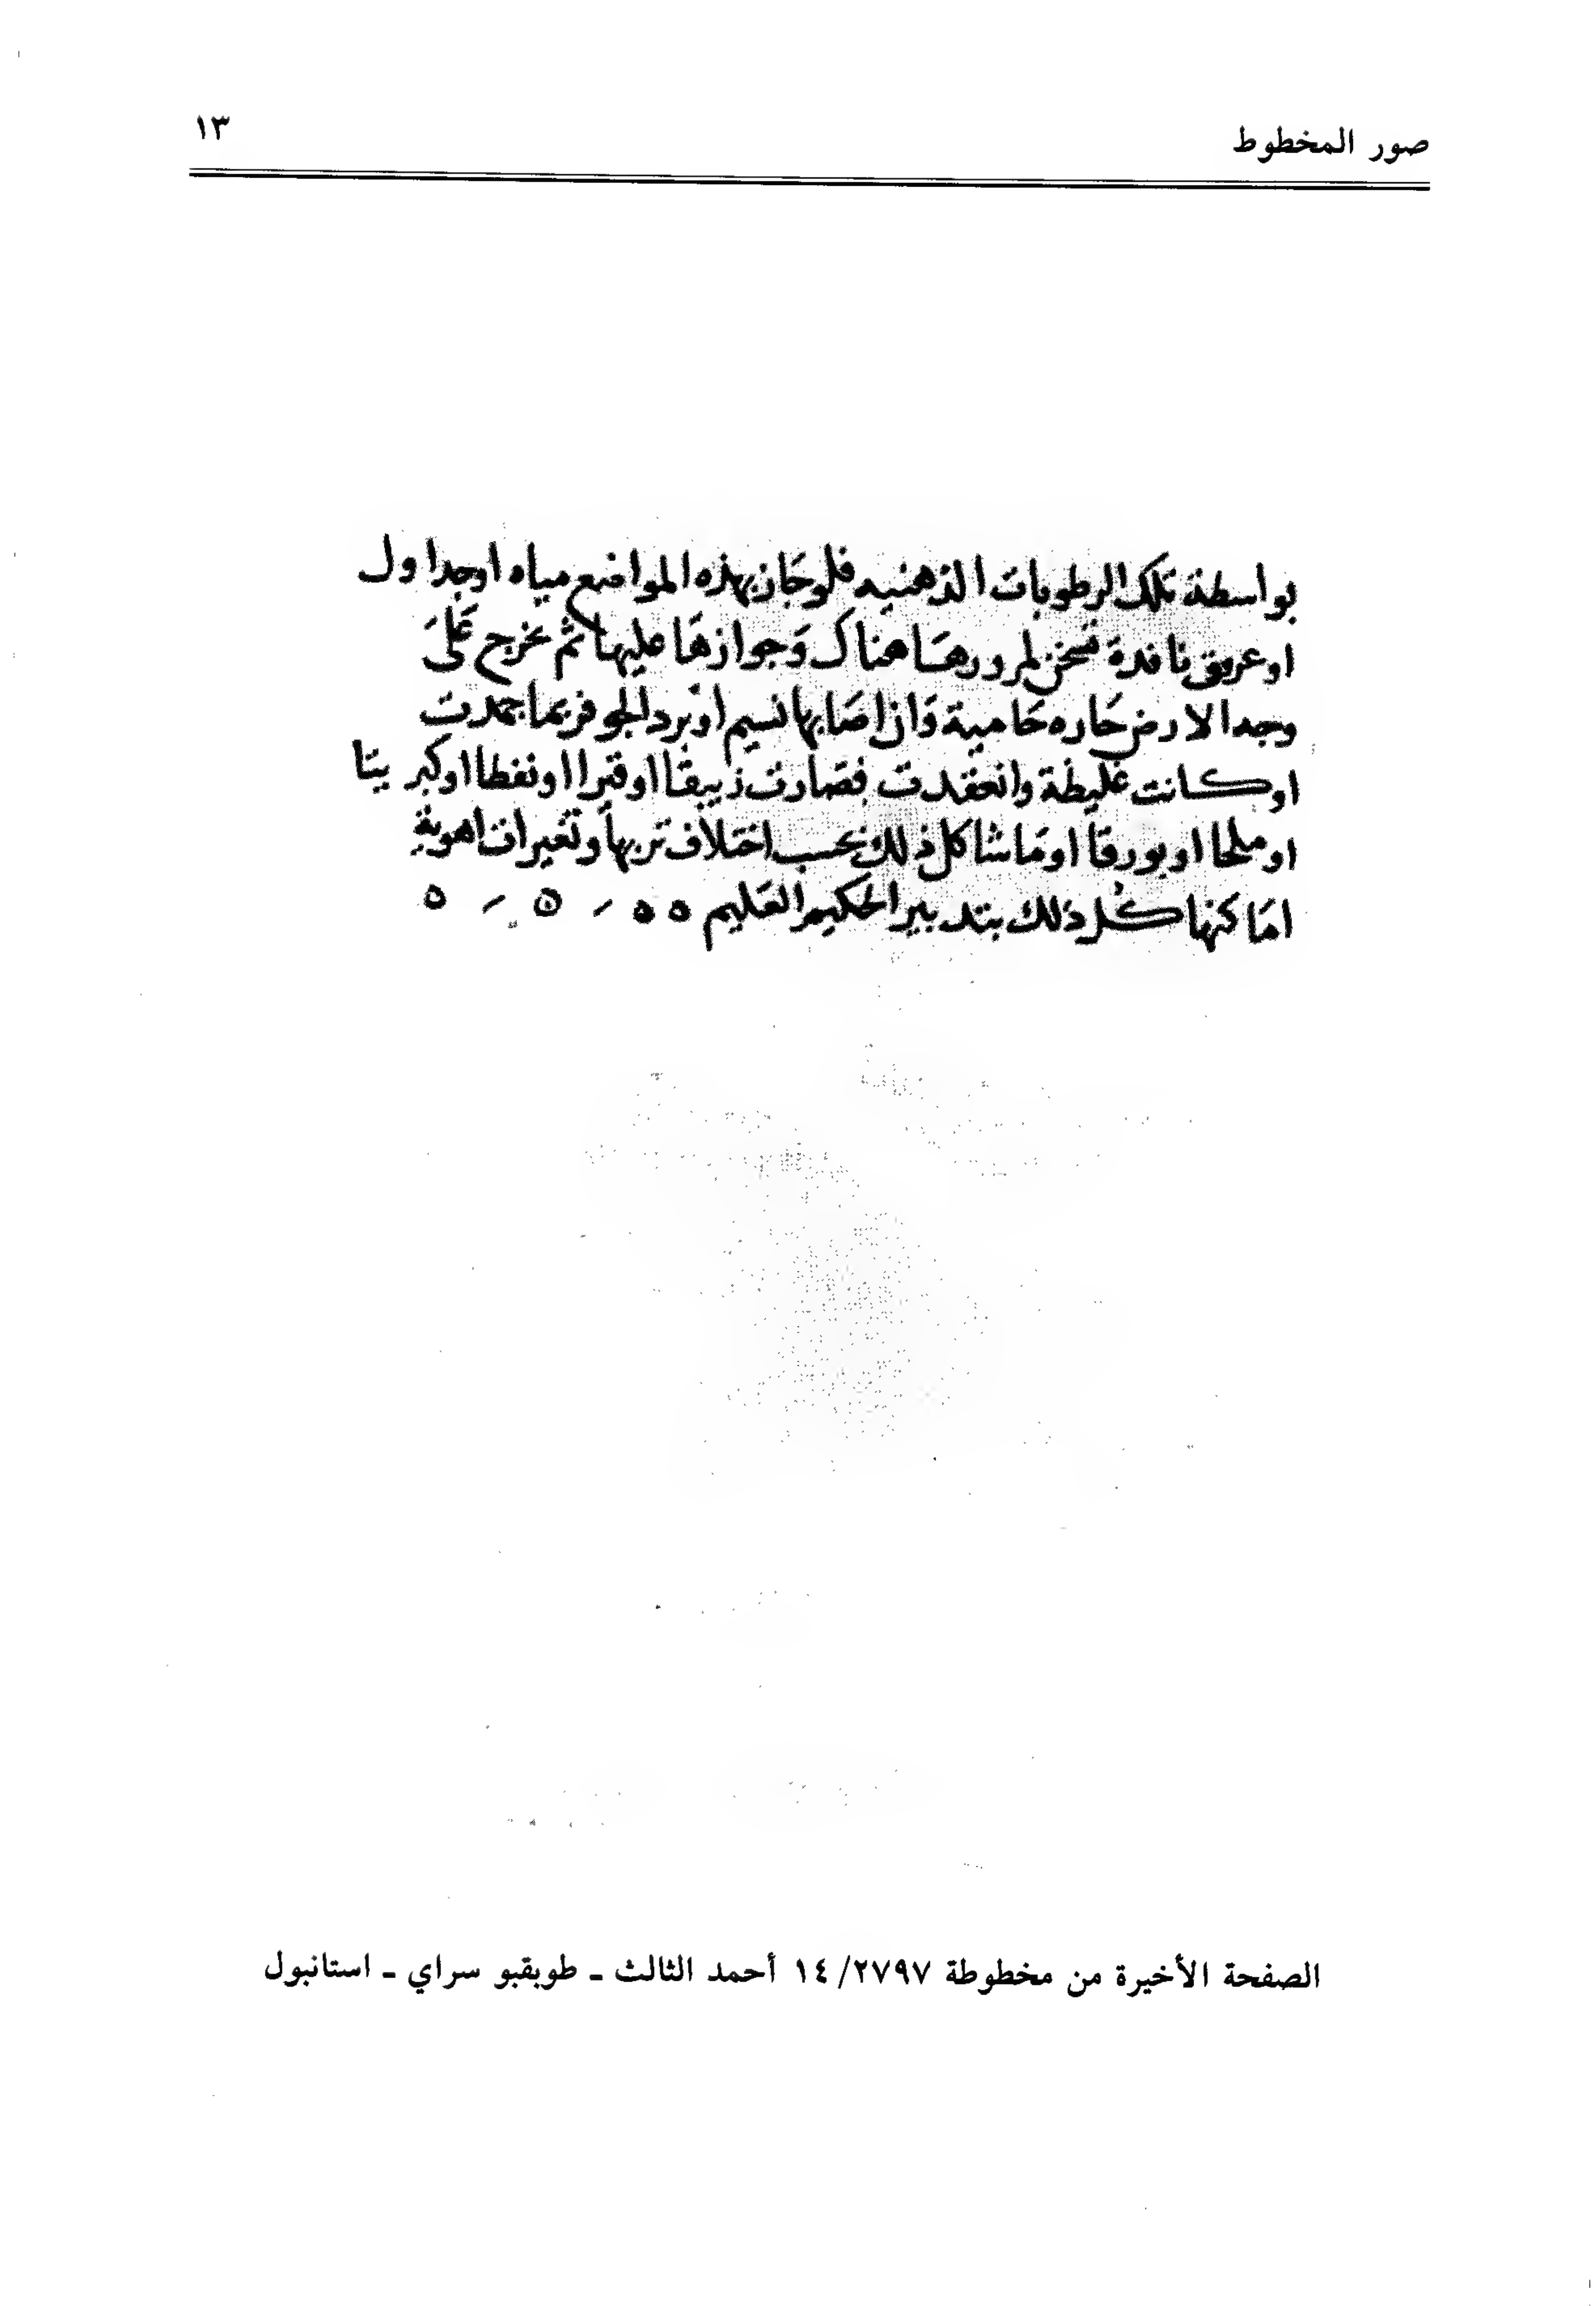 صور المخطوط
١٣
بواسطة تلك الرطوبات الدهنيه فلو جاز بهذه المواضع مياه او جداول
او عروق نافدة تسخن لمرورها هناك وجوازها عليها ثم تخرج على
وجه الارض حاره حامية وان اصابها نسيم او برد الجو فربما جمدت
او كانت غليظة وانعقدت فصارت زيبقا او قيرا او نفطا او كبريتا
او ملحا او بورقا او ما شاكل ذلك بحسب اختلاف تربها وتغيرات اهوية
اماكنها كل ذلك بتدبير الحكيم العليم
الصفحة الأخيرة من مخطوطة ١٤/٢٧٩٧ أحمد الثالث ـ طوبقبو سراي ـ استانبول